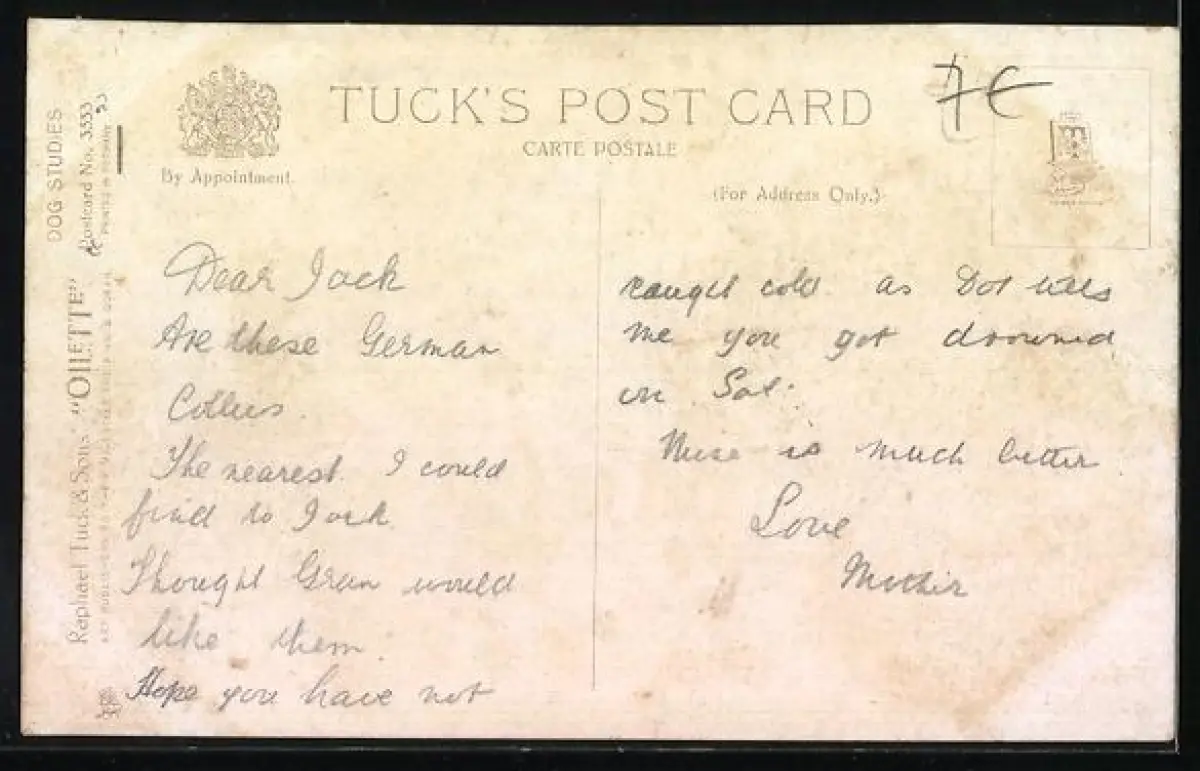 TUCK'S POST CARD
CARTE POSTALE
By Appointment.
(For Address Only.)
7€
DOG STUDIES
Postcard No. 3333
Raphael Tuck & Sons' "OILETTE"
Dear Jack
Are these German
Collies.
The nearest I could
find to Jack.
Thought Gran would
like them.
Hope you have not
caught cold as Dot tells
me you got drowned
on Sat.
Nurse is much better.
Love
Mother